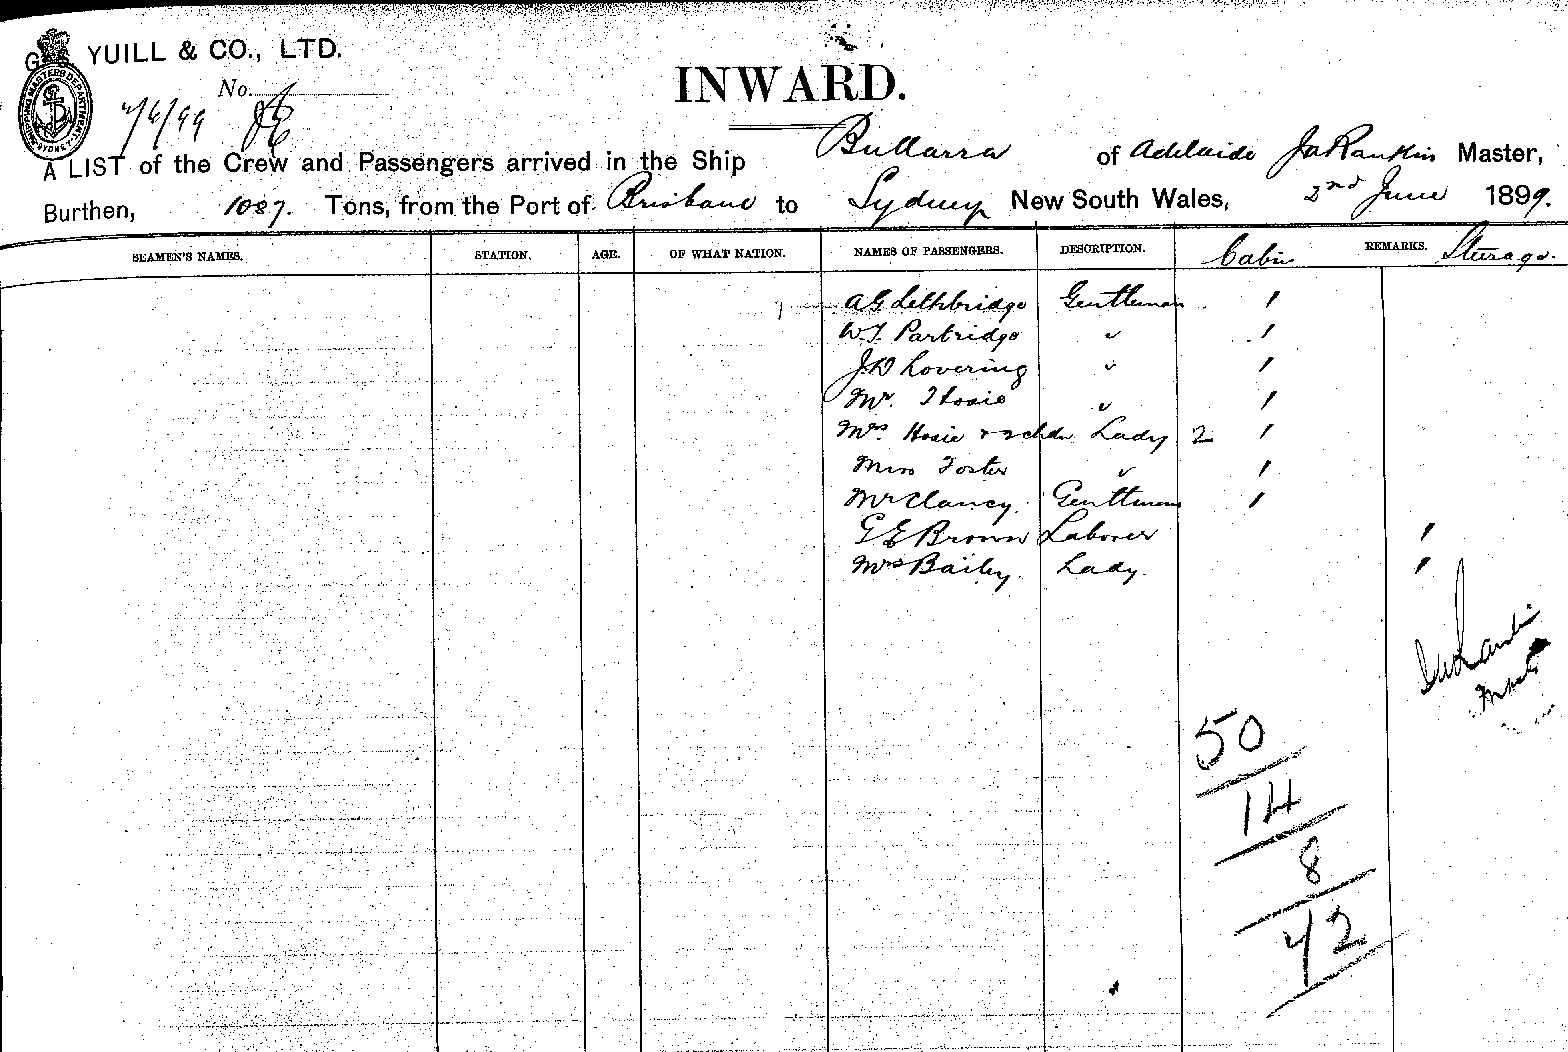 YUILL & CO., LTD.
No.
2/6/99
INWARD.
A LIST of the Crew and Passengers arrived in the Ship Bullarra of Adelaide Jn Rankin Master,
Burthen, 1087. Tons, from the Port of Brisbane to Sydney New South Wales, 2nd June 1899.
SEAMEN'S NAMES. STATION. AGE. OF WHAT NATION. NAMES OF PASSENGERS. DESCRIPTION. Cabin REMARKS. Steerage.
A G Lethbridge Gentleman 1
W J. Partridge " 1
J. D Lovering " 1
Mr. Hosie " 1
Mrs. Hosie & 2 chdn Lady 2 1
Miss Foster " 1
Mr Clancy. Gentleman 1
G E Brown Laborer 1
Mrs Bailey. Lady. 1
50
14
8
42